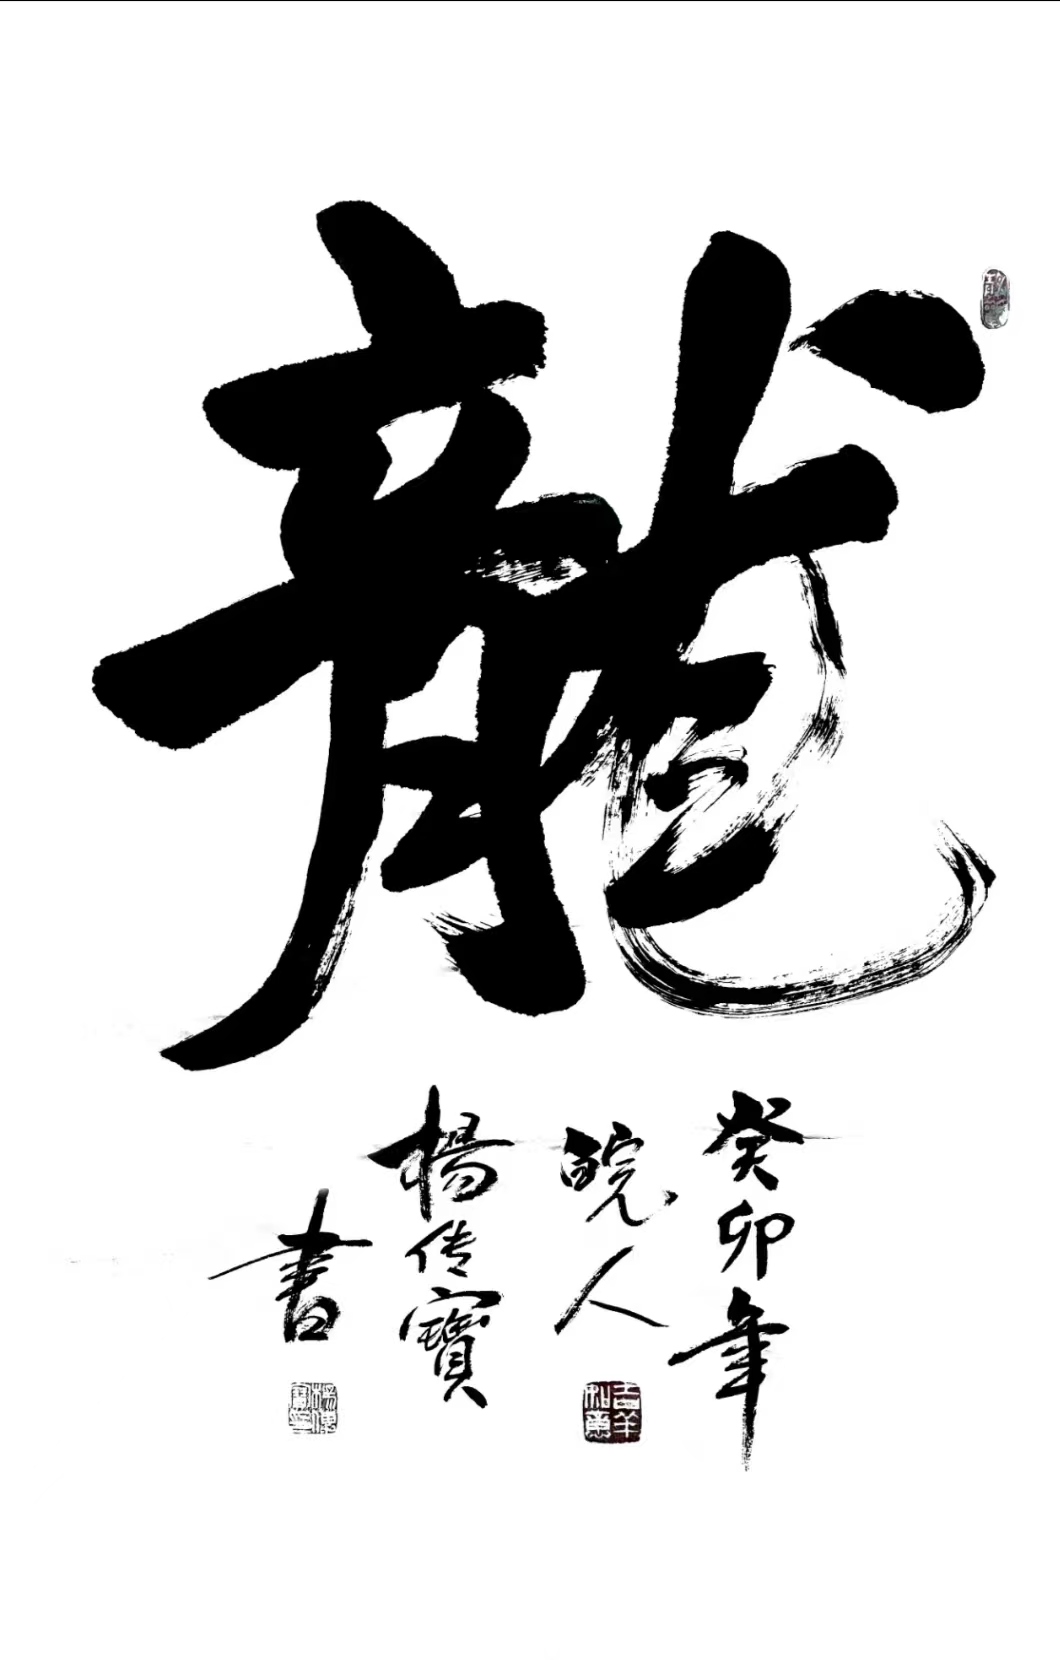 龍
癸卯年
皖人
楊传寶
書